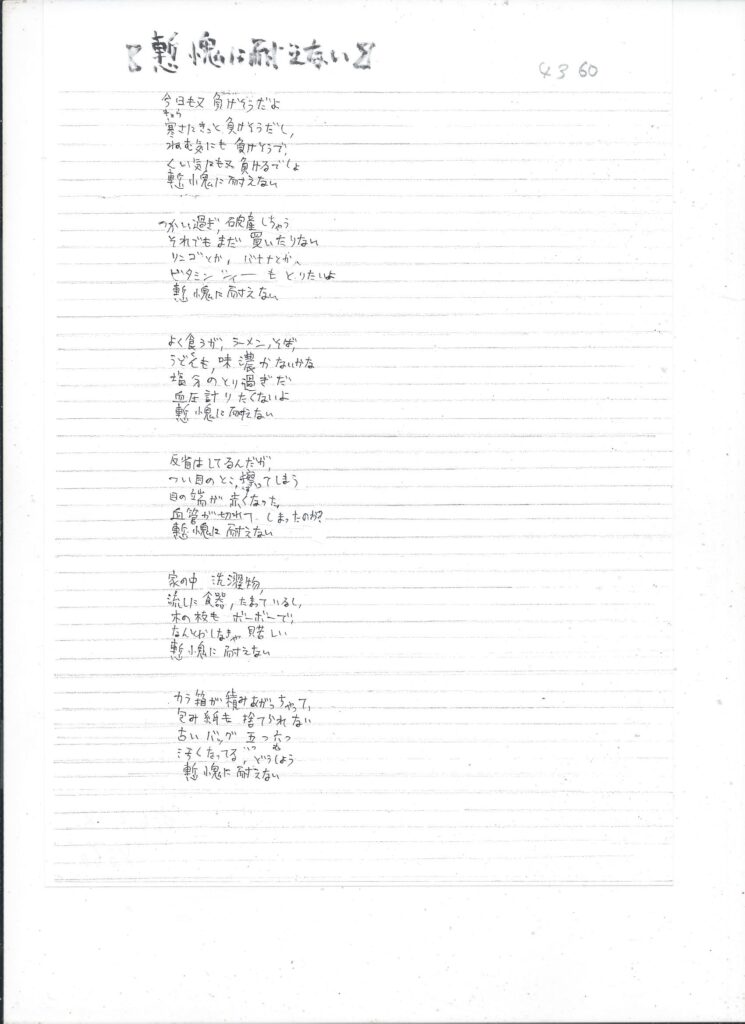 【慙愧に耐えない】
4360
今日も又 負けそうだよ
きょう
寒さにきっと負けそうだし、
ねむ気にも 負けそうで、
くい気にも又 負けるでしょ
慙愧に耐えない
つかい過ぎ、破産しちゃう
それでもまだ 買いたりない
リンゴとか、バナナとか、
ビタミン シィー も とりたいよ
慙愧に耐えない
よく食うが、ラーメン、そば、
うどんも、味 濃かないかな
塩分のとり過ぎだ
血圧計りたくないよ
慙愧に耐えない
反省はしてるんだが、
つい目のとこ、擦ってしまう
目の端が 赤くなった、
血管が切れて しまったのか?
慙愧に耐えない
家の中 洗濯物、
流しに食器、たまっているし、
木の枝も ボーボーで、
なんとかしなきゃ
慙愧に耐えない
カラ箱が積みあがっちゃって、
包み紙も 捨てられない
古いバッグ 五つ六つ
いつ む
汚くなってる、どうしよう
慙愧に耐えない